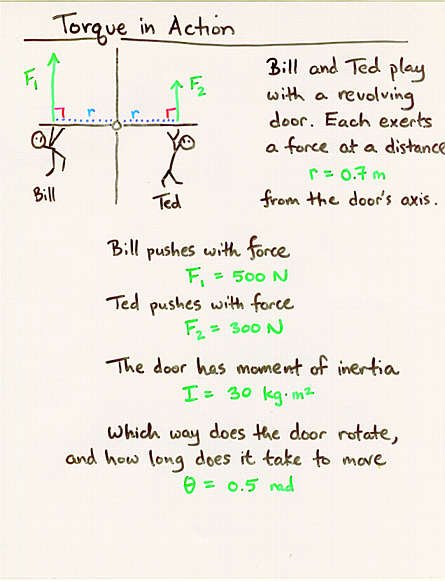 Torque in Action
F₁
F₂
r
r
Bill
Ted
Bill and Ted play
with a revolving
door. Each exerts
a force at a distance
r = 0.7 m
from the door's axis.
Bill pushes with force
F₁ = 500 N
Ted pushes with force
F₂ = 300 N
The door has moment of inertia
I = 30 kg·m²
Which way does the door rotate,
and how long does it take to move
θ = 0.5 rad